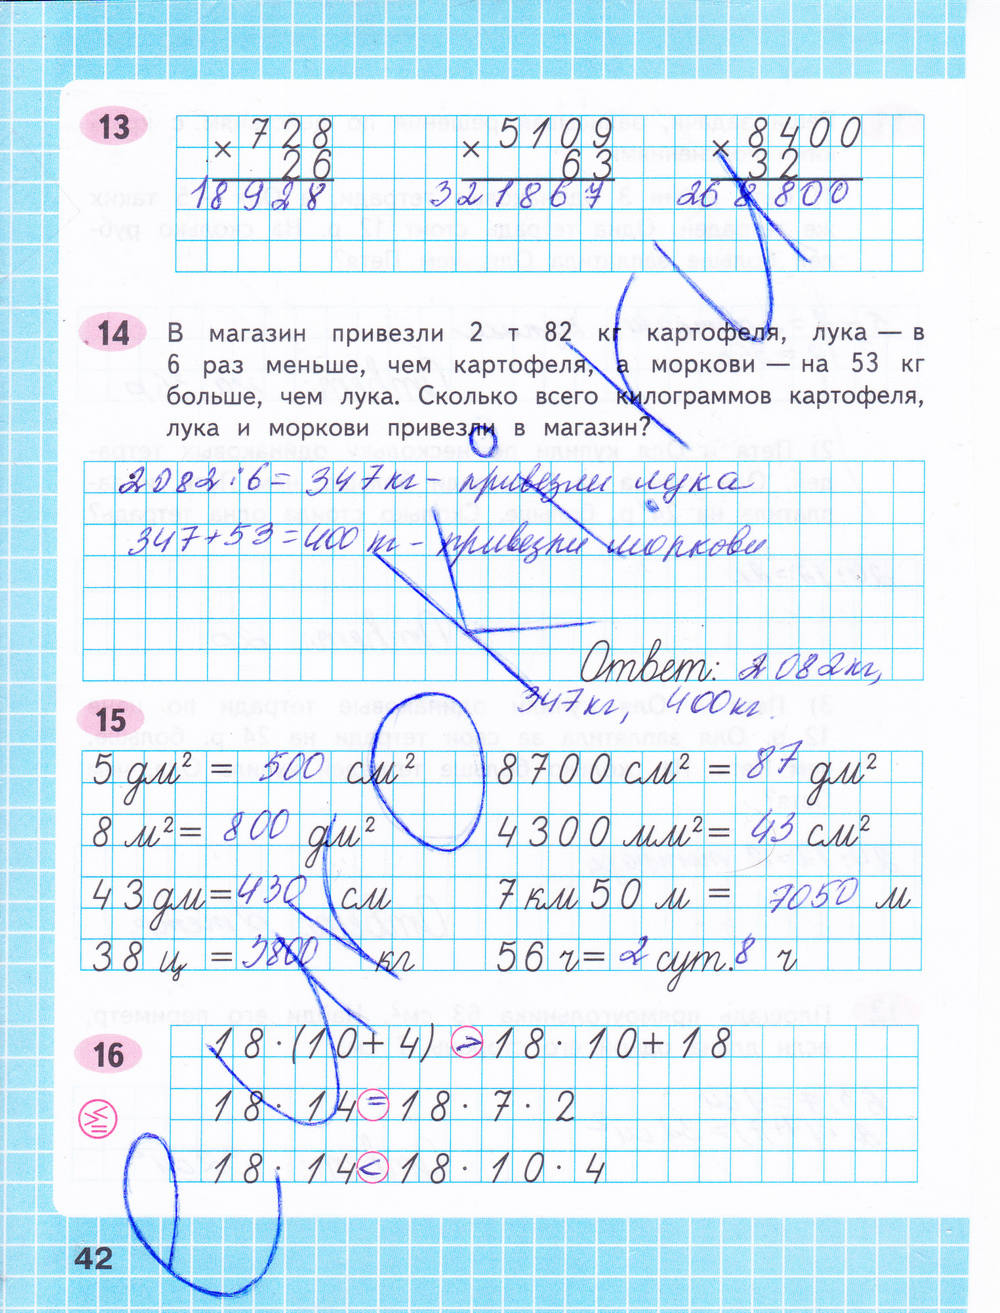 13
× 728 × 5109 × 8400
26 63 32
18928 321867 268800
14 В магазин привезли 2 т 82 кг картофеля, лука — в
6 раз меньше, чем картофеля, а моркови — на 53 кг
больше, чем лука. Сколько всего килограммов картофеля,
лука и моркови привезли в магазин?
2082:6=347кг- привезли лука
347+53=400 т - привезли моркови
Ответ: 2082кг,
347кг, 400кг.
15
5 дм² = 500 см² 8700 см² = 87 дм²
8 м² = 800 дм² 4300 мм² = 43 см²
43 дм = 430 см 7 км 50 м = 7050 м
38 ц = 3800 кг 56 ч = 2 сут. 8 ч
16
18·(10+4) > 18·10+18
18·14 = 18·7·2
18·14 < 18·10·4
42